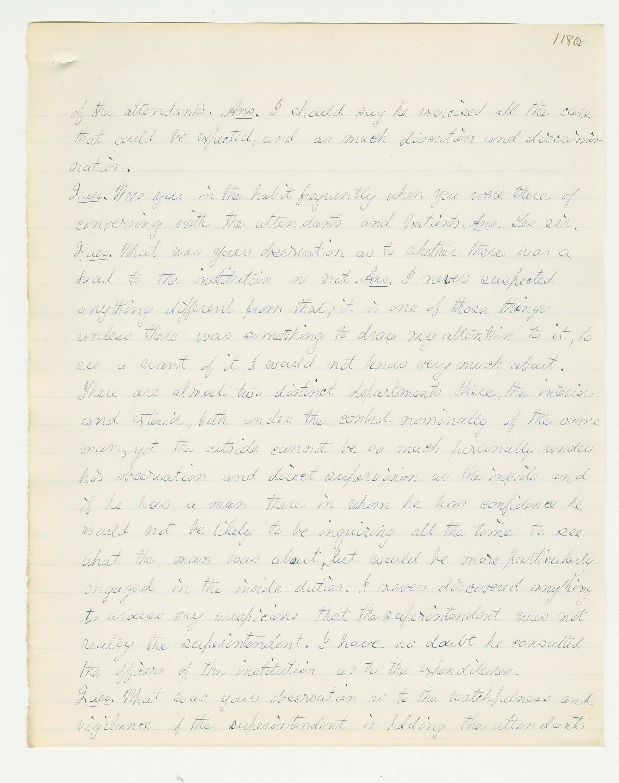 1180
of the attendants. Ans. I should say he exercised all the care
that could be expected, and as much discretion and discrimi-
nation.
Ques. Were you in the habit frequently when you were there of
conversing with the attendants and patients. Ans. Yes sir.
Ques. What was your observation as to whether there was a
head to the institution or not Ans. I never suspected
anything different from that; it is one of those things
unless there was something to draw my attention to it, to
see a want of it I would not know very much about.
There are almost two distinct departments there, the interior
and exterior, both under the control nominally of the same
man, yet the outside cannot be so much personally under
his observation and direct supervision as the inside and
if he has a man there in whom he has confidence he
would not be likely to be inquiring all the time to see
what the man was about, but would be more particularly
engaged in the inside duties. I never discovered anything
to arouse my suspicions that the superintendent was not
really the superintendent. I have no doubt he consulted
the officers of the institution as to the expenditures.
Ques. What was your observation as to the watchfulness and
vigilance of the superintendent in holding the attendants